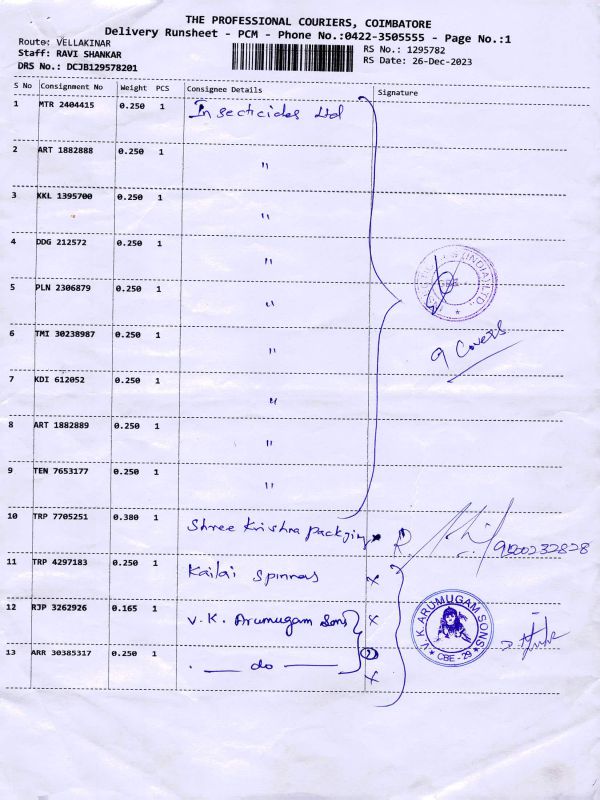 THE PROFESSIONAL COURIERS, COIMBATORE
Delivery Runsheet - PCM - Phone No.:0422-3505555 - Page No.:1
Route: VELLAKINAR
Staff: RAVI SHANKAR
DRS No.: DCJB129578201
RS No.: 1295782
RS Date: 26-Dec-2023
S No Consignment No Weight PCS Consignee Details Signature
1 MTR 2404415 0.250 1 Insecticides Ltd
2 ART 1882888 0.250 1 "
3 KKL 1395700 0.250 1 "
4 DDG 212572 0.250 1 "
5 PLN 2306879 0.250 1 "
6 TMI 30238987 0.250 1 "
7 KDI 612052 0.250 1 "
8 ART 1882889 0.250 1 "
9 TEN 7653177 0.250 1 "
(INDIA) LTD.
9 Covers
10 TRP 7705251 0.380 1 Shree Krishna packging
11 TRP 4297183 0.250 1 Kailai Spinners x
12 RJP 3262926 0.165 1 V.K. Arumugam Sons x
13 ARR 30385317 0.250 1 . — do — 2 x
V.K. ARUMUGAM SONS
★ CBE - 29 ★